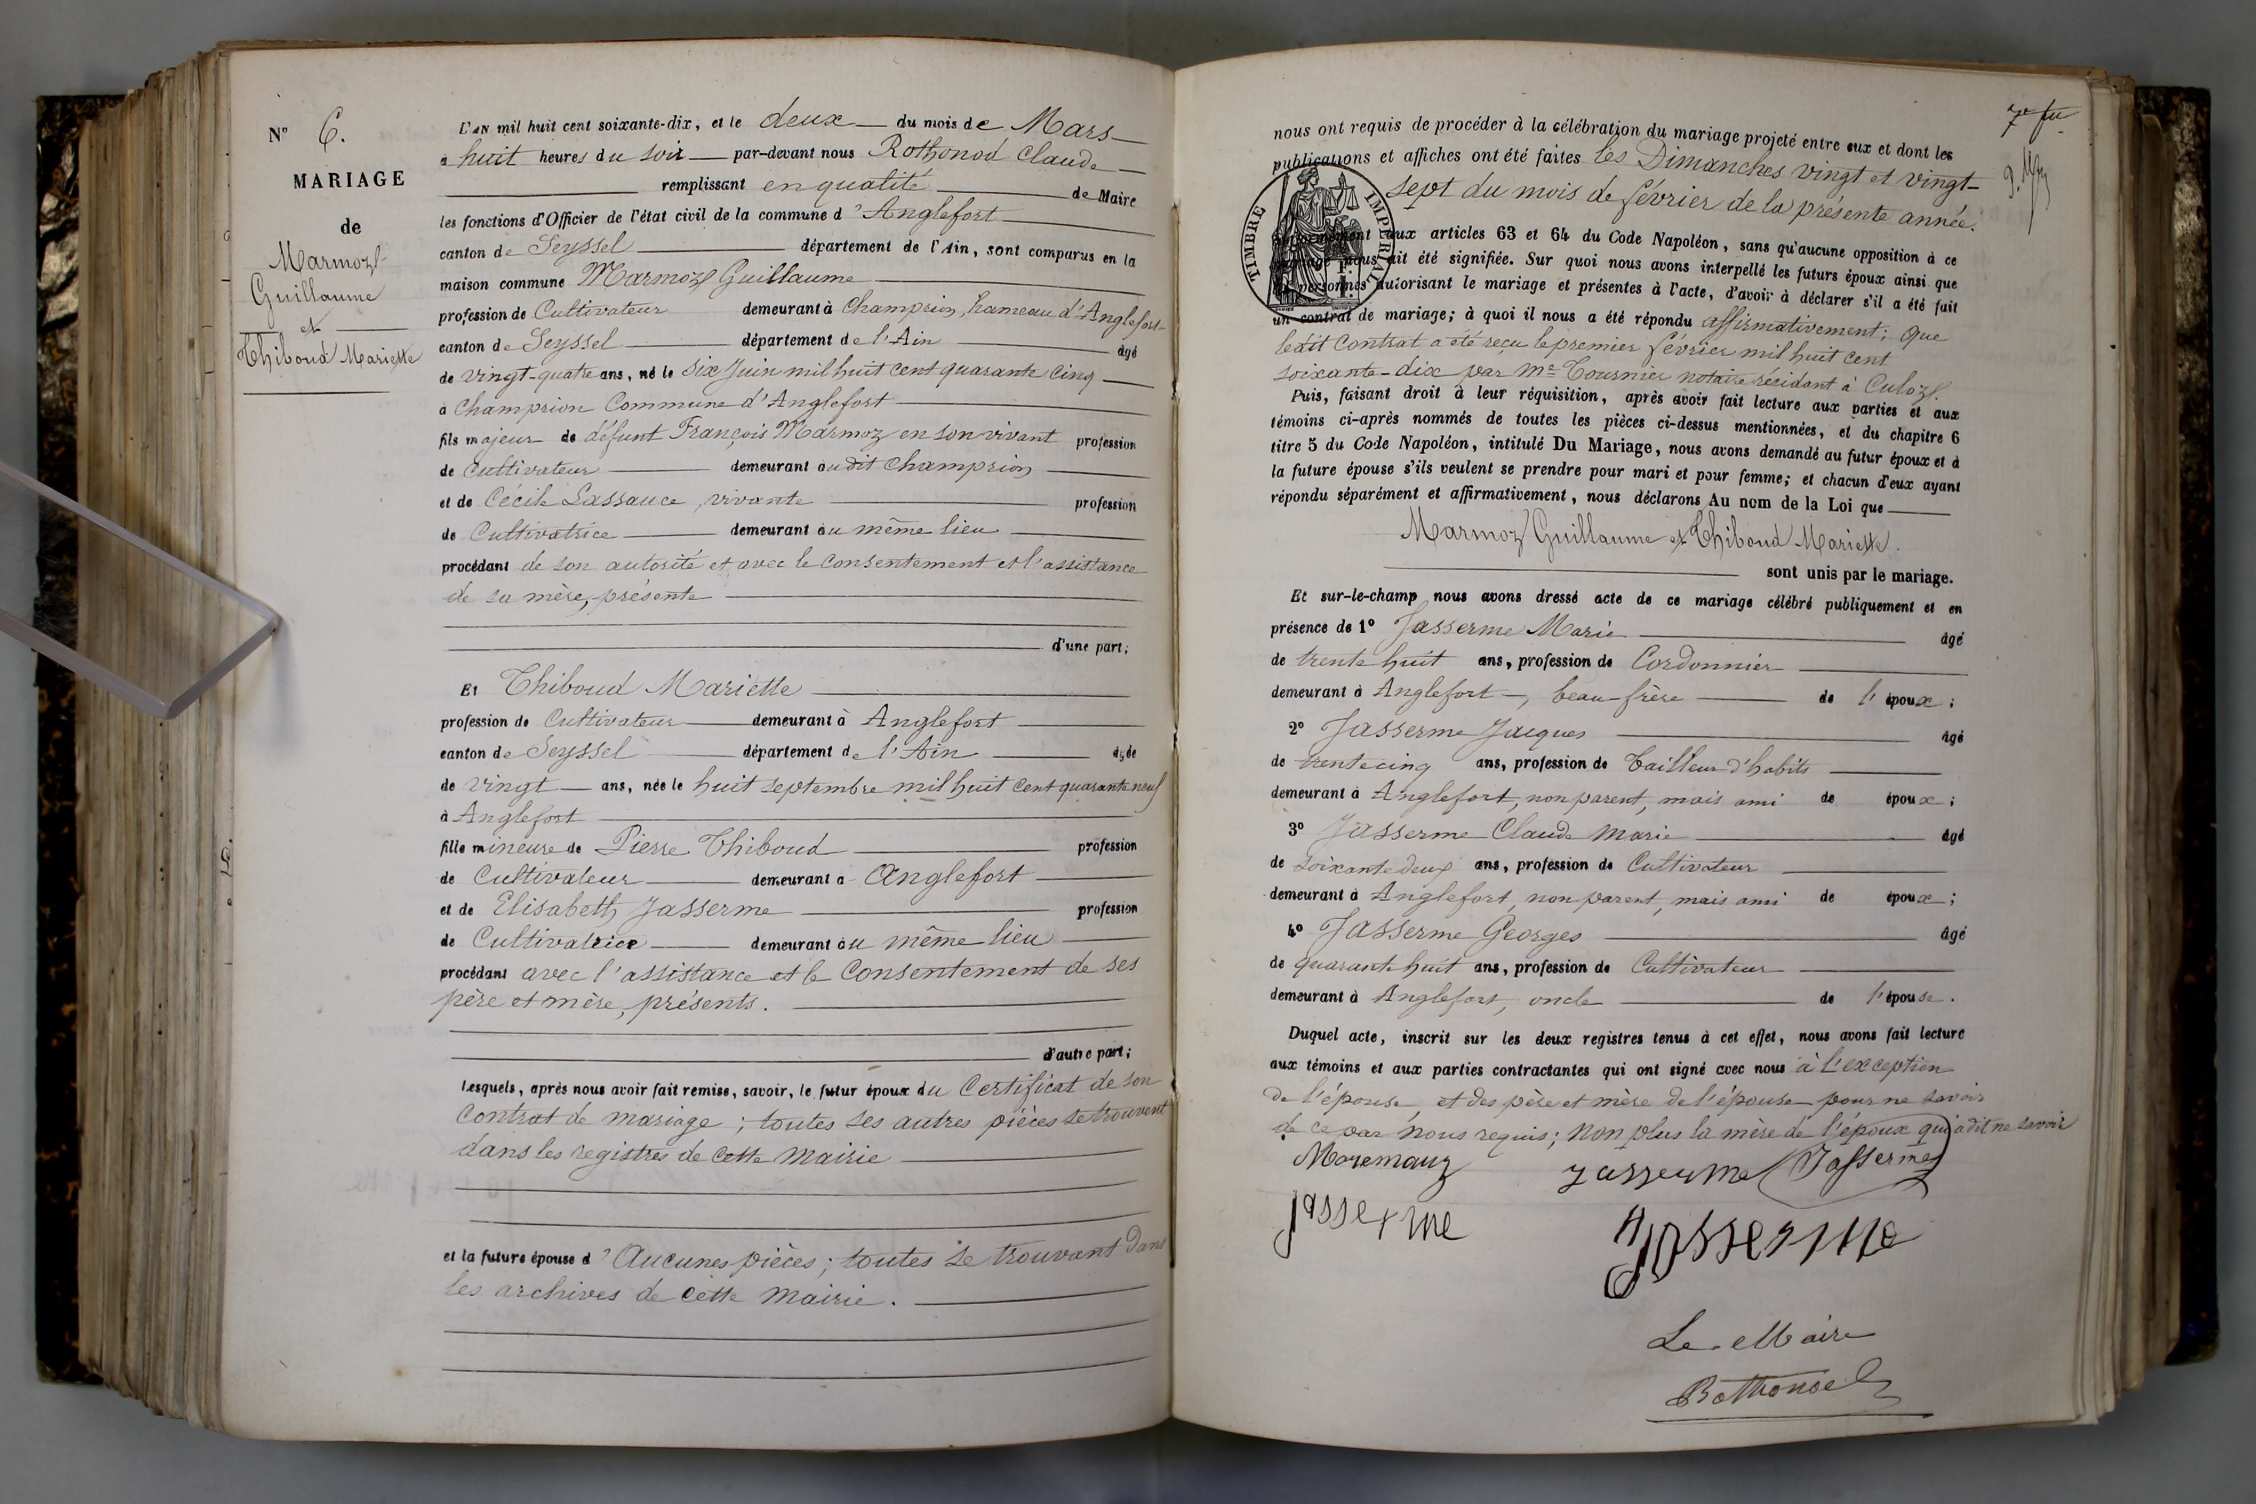 N° 6.
MARIAGE
de
Marmoz
Guillaume
et
Thiboud Mariette
L'AN mil huit cent soixante-dix, et le deux du mois de Mars
à huit heures du soir par-devant nous Rothonod Claude
remplissant en qualité de Maire
les fonctions d'Officier de l'état civil de la commune d'Anglefort
canton de Seyssel département de l'Ain, sont comparus en la
maison commune Marmoz Guillaume
profession de Cultivateur demeurant à Champrion, hameau d'Anglefort
canton de Seyssel département de l'Ain âgé
de vingt-quatre ans, né le six Juin mil huit cent quarante cinq
à Champrion Commune d'Anglefort
fils majeur de défunt François Marmoz en son vivant profession
de Cultivateur demeurant au dit Champrion
et de Cécile Lassauce, vivante profession
de Cultivatrice demeurant au même lieu
procédant de son autorité et avec le consentement et l'assistance
de sa mère, présente
d'une part;
Et Thiboud Mariette
profession de Cultivateur demeurant à Anglefort
canton de Seyssel département de l'Ain âgée
de vingt ans, née le huit septembre mil huit cent quarante neuf
à Anglefort
fille mineure de Pierre Thiboud profession
de Cultivateur demeurant à Anglefort
et de Elisabeth Jasserme profession
de Cultivatrice demeurant au même lieu
procédant avec l'assistance et le consentement de ses
père et mère, présents.
d'autre part;
Lesquels, après nous avoir fait remise, savoir, le futur époux du Certificat de son
contrat de mariage; toutes ses autres pièces se trouvent
dans les registres de cette Mairie
et la future épouse d'Aucunes pièces; toutes se trouvant dans
les archives de cette Mairie.
nous ont requis de procéder à la célébration du mariage projeté entre eux et dont les
publications et affiches ont été faites les Dimanches vingt et vingt-
sept du mois de février de la présente année.
TIMBRE IMPERIAL
aux articles 63 et 64 du Code Napoléon, sans qu'aucune opposition à ce
mariage nous ait été signifiée. Sur quoi nous avons interpellé les futurs époux ainsi que
les personnes autorisant le mariage et présentes à l'acte, d'avoir à déclarer s'il a été fait
un contrat de mariage; à quoi il nous a été répondu affirmativement; Que
ledit Contrat a été reçu le premier février mil huit cent
soixante-dix par Me Tournier notaire résidant à Culoz.
Puis, faisant droit à leur réquisition, après avoir fait lecture aux parties et aux
témoins ci-après nommés de toutes les pièces ci-dessus mentionnées, et du chapitre 6
titre 5 du Code Napoléon, intitulé Du Mariage, nous avons demandé au futur époux et à
la future épouse s'ils veulent se prendre pour mari et pour femme; et chacun d'eux ayant
répondu séparément et affirmativement, nous déclarons Au nom de la Loi que
Marmoz Guillaume et Thiboud Mariette.
sont unis par le mariage.
Et sur-le-champ nous avons dressé acte de ce mariage célébré publiquement et en
présence de 1° Jasserme Marie âgé
de trente huit ans, profession de Cordonnier
demeurant à Anglefort, beau-frère de l'époux;
2° Jasserme Jacques âgé
de trente cinq ans, profession de Tailleur d'habits
demeurant à Anglefort, non parent, mais ami de époux;
3° Jasserme Claude Marie âgé
de soixante deux ans, profession de Cultivateur
demeurant à Anglefort, non parent, mais ami de époux;
4° Jasserme Georges âgé
de quarante huit ans, profession de Cultivateur
demeurant à Anglefort, oncle de l'épouse.
Duquel acte, inscrit sur les deux registres tenus à cet effet, nous avons fait lecture
aux témoins et aux parties contractantes qui ont signé avec nous à l'exception
de l'épouse, et des père et mère de l'épouse pour ne savoir
de ce par nous requis; non plus la mère de l'époux qui a dit ne savoir
Jasserme Jasserme
Jasserme Jasserme
Le Maire
Rothonod